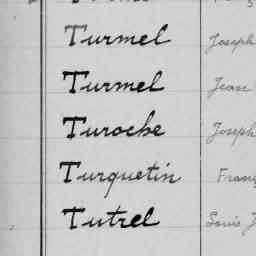 Turmel Joseph
Turmel Jean
Turoche Joseph
Turquetin Franç
Tutrel Louis J